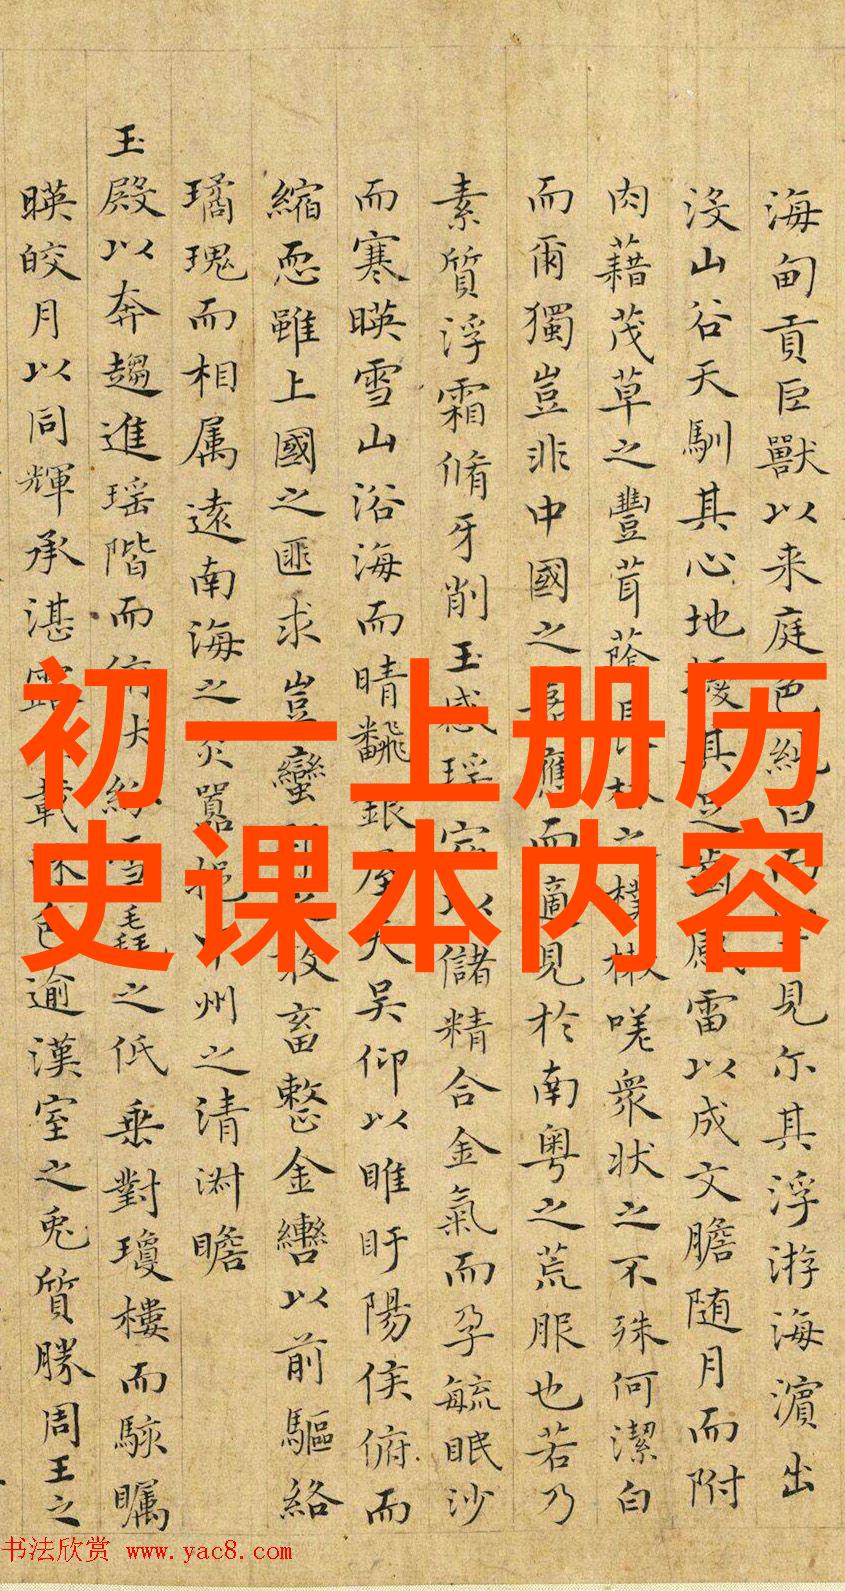 海甸貢巨獸以来庭色純白而
見尔其浮游海濱出
没山谷天馴其心地擾其
雷以成文膽随月而附
肉藉茂草之豐茸蔭
樸樕嗟衆状之不殊何潔白
而爾獨豈非中國之
應而適見於南粤之荒服也若乃
素質浮霜脩牙削玉感瑶
以儲精合金氣而孕毓眠沙
而寒暎雪山浴海而晴翻銀屋天吴仰以睢盱陽侯俯而
縮恧雖上國之匪求豈蠻
敢畜整金轡以前驅絡
璚瑰而相属遠南海之炎嚣挹中州之清淑瞻
玉殿以奔趨進瑶階而
雪毳之低垂對瓊樓而駭矚
暎皎月以同輝承湛露
載
色逾漢室之兎質勝周王之
初一上册历
史课本内容
书法欣赏 www.yac8.com